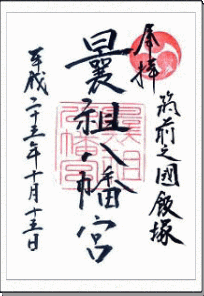 筑前之國飯塚
奉拝
曩祖八幡宮
平成二十三年十月十三日
曩祖八幡宮